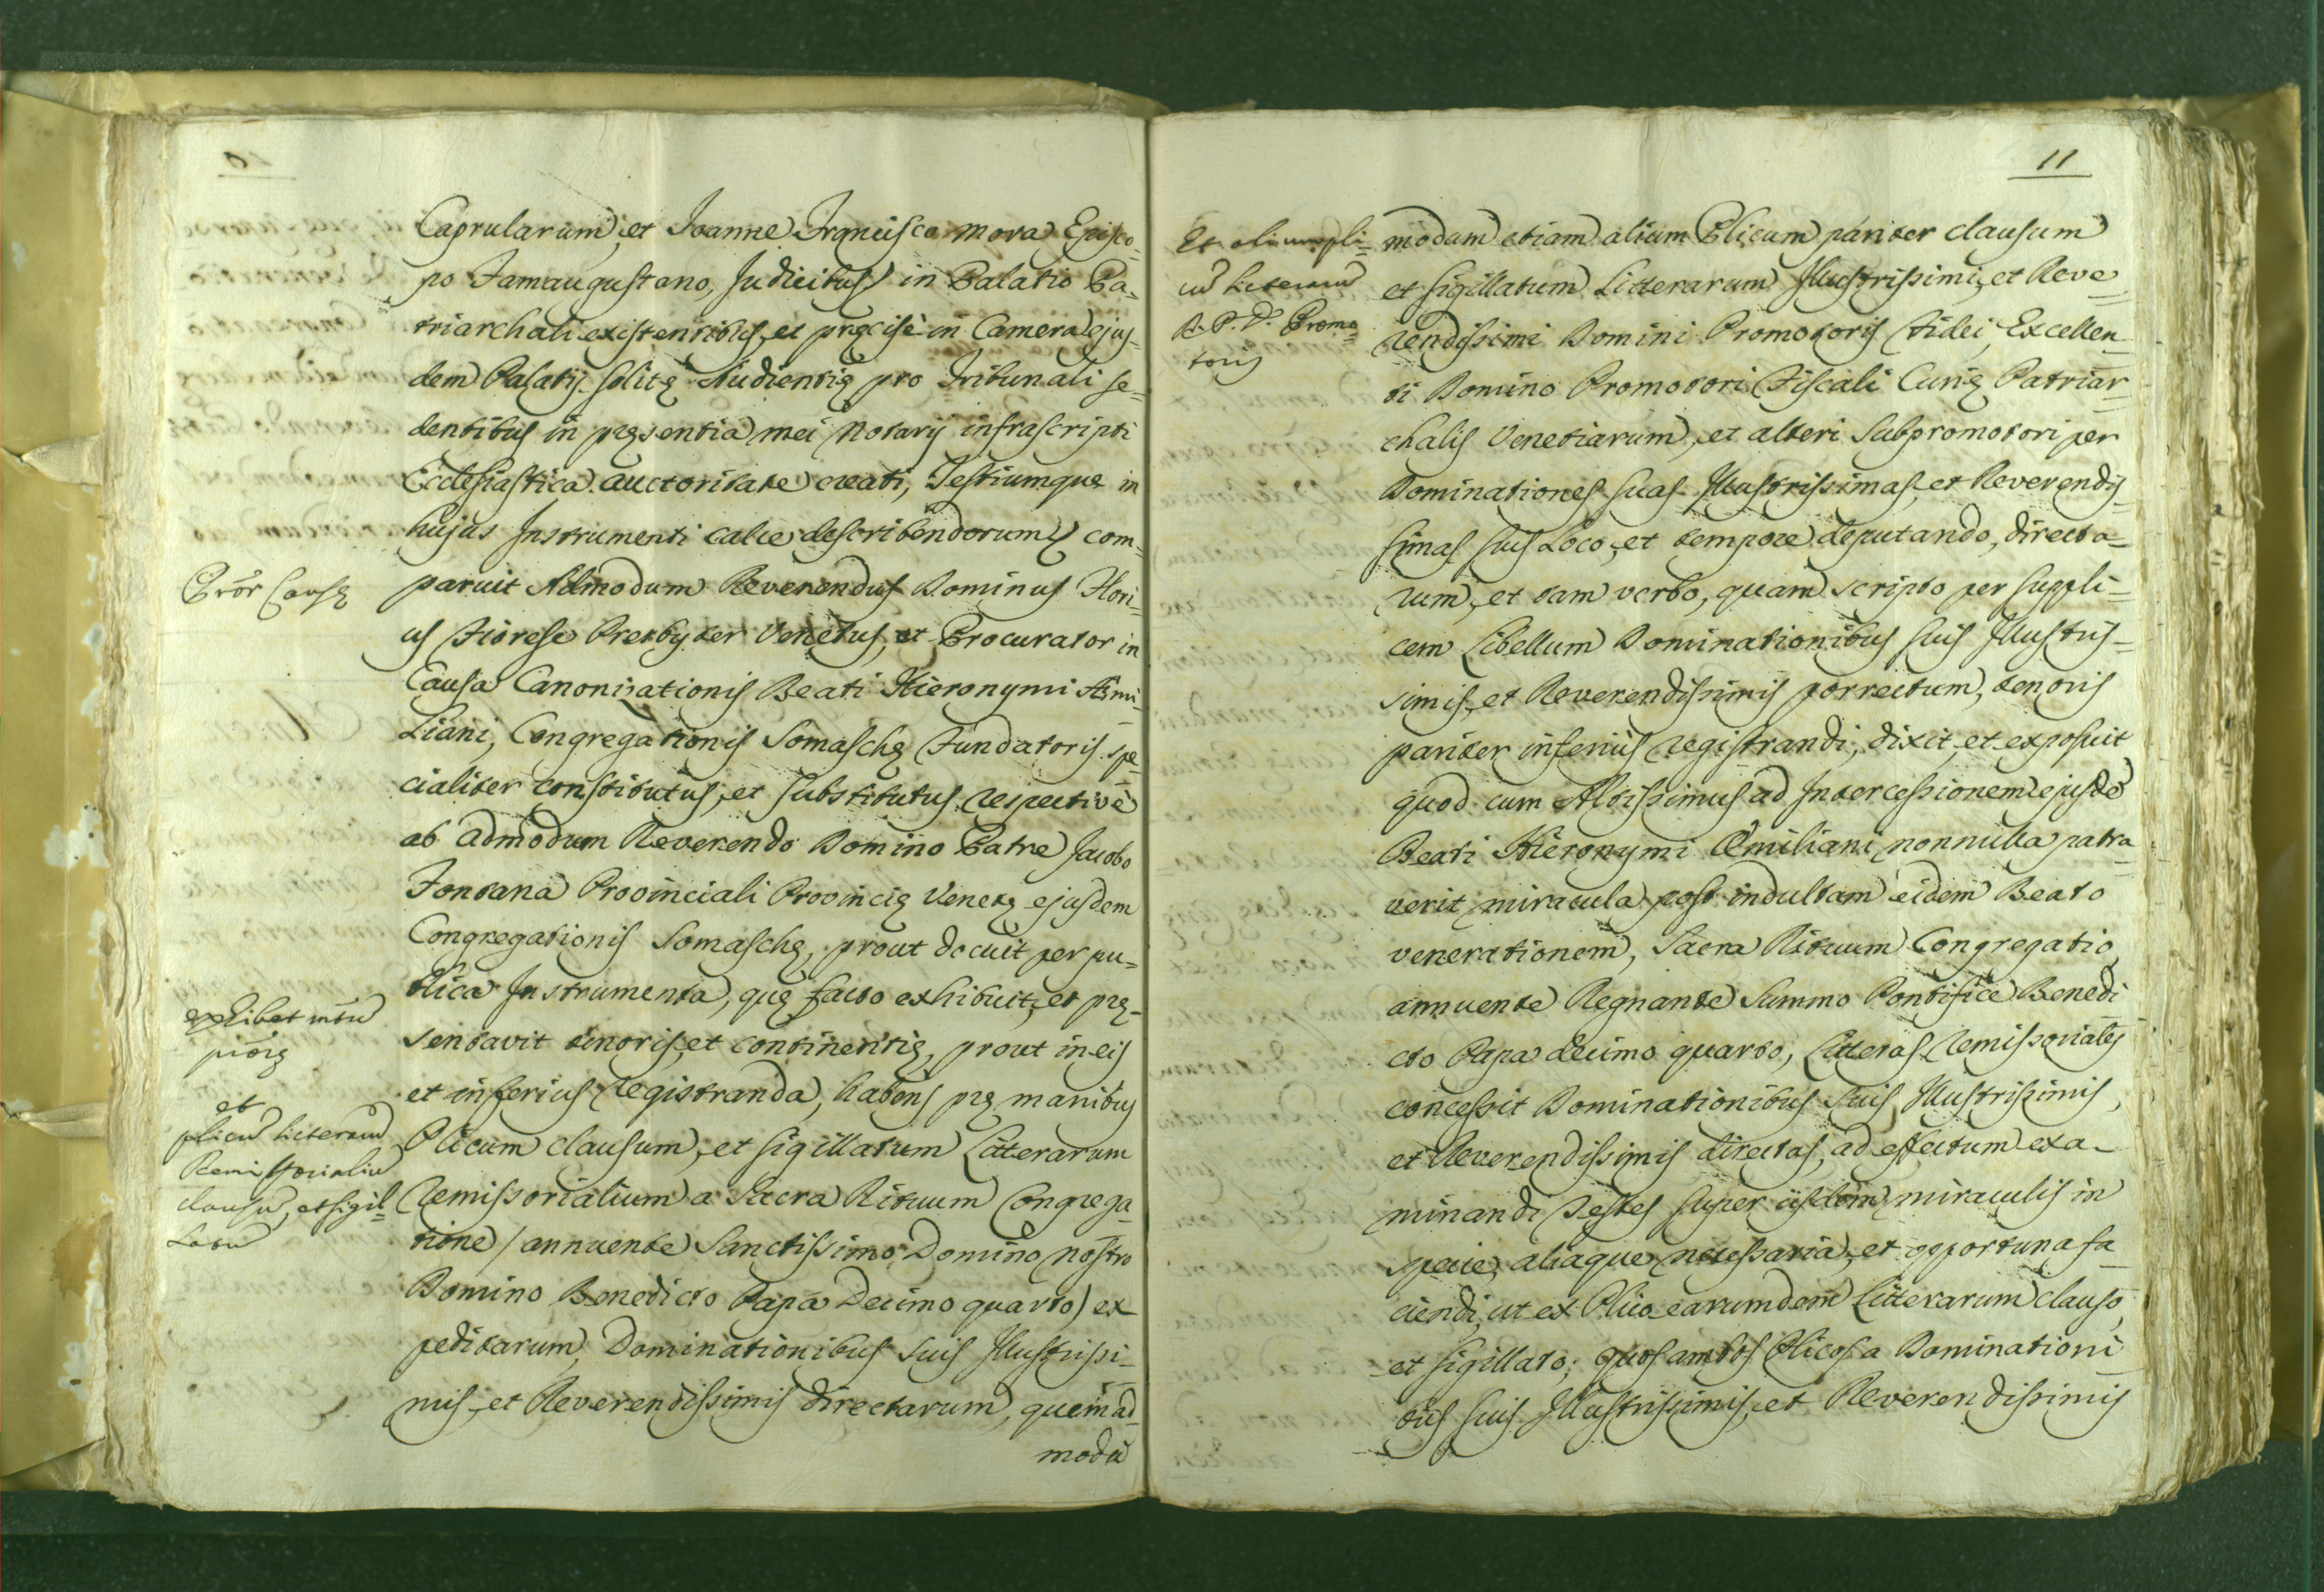 Caprularum, et Joanne Francisco Mora Episco-
po Famaugustano, Judicibus in Palatio Pa-
triarchali existentibus, et præcisè in Camera ejus-
dem Palatij solitæ Audientiæ pro Tribunali se-
dentibus in præsentia mei Notarij infrascripti
Ecclesiastica auctoritate creati, Testiumque in
hujus Instrumenti calce describendorum, com-
Prõr Causæ
paruit Admodum Reverendus Dominus Flori-
us Fiorese Presbyter Venetus, et Procurator in
Causa Canonizationis Beati Hieronymi Æmi-
liani, Congregationis Somaschæ Fundatoris spe-
cialiter constitutus, et substitutus respectivè
ab admodum Reverendo Domino Patre Jacobo
Fontana Provinciali Provinciæ Venetæ ejusdem
Congregationis Somaschæ, prout docuit per pu-
blica Instrumenta, quæ facto exhibuit, et præ-
exhibet
sentavit tenoris, et continentiæ, prout in eis
et inferius registranda, habens præ manibus
et
plicũ literarũ
Remissorialiũ
clausũ, et sigil=
latũ
Plicum clausum, et sigillatum Litterarum
Remissorialium a Sacra Rituum Congrega-
tione / annuente Sanctissimo Domino nostro
Domino Benedicto Papa Decimo quarto) ex
peditarum, Dominationibus suis Illustrissi-
mis, et Reverendissimis directarum, quemad-
modũ
11
Et alium pli=
cũ literarũ
R. P. D. Promo=
toris
modum etiam alium Plicum pariter clausum
et sigillatum Litterarum Illustrissimi, et Reve
rendissimi Domini Promotoris Fidei, Excellen-
ti Domino Promotori Fiscali Curiæ Patriar-
chalis Venetiarum, et alteri Subpromotori per
Dominationes suas Illustrissimas, et Reverendis-
simas suis Loco, et tempore deputando, directa-
rum, et tam verbo, quam scripto per suppli-
cem Libellum Dominationibus suis Illustris-
simis, et Reverendissimis porrectum, tenoris
pariter inferiùs registrandi, dixit, et exposuit
quod cum Altissimus ad Intercessionem ejusdẽ
Beati Hieronymi Æmiliani nonnulla patra-
verit miracula post indultam eidem Beato
venerationem, Sacra Rituum Congregatio,
annuente Regnante Summo Pontifice Benedi
cto Papa decimo quarto, Litteras Remissoriales
concessit Dominationibus suis Illustrissimis,
et Reverendissimis directas, ad effectum exa-
minandi Testes super iisdem miraculis in
specie, aliaque necessaria, et opportuna fa
ciendi, ut ex Plico earumdem Litterarum clauso,
et sigillato; quos ambos Plicos a Dominationi
bus suis Illustrissimis, et Reverendissimis